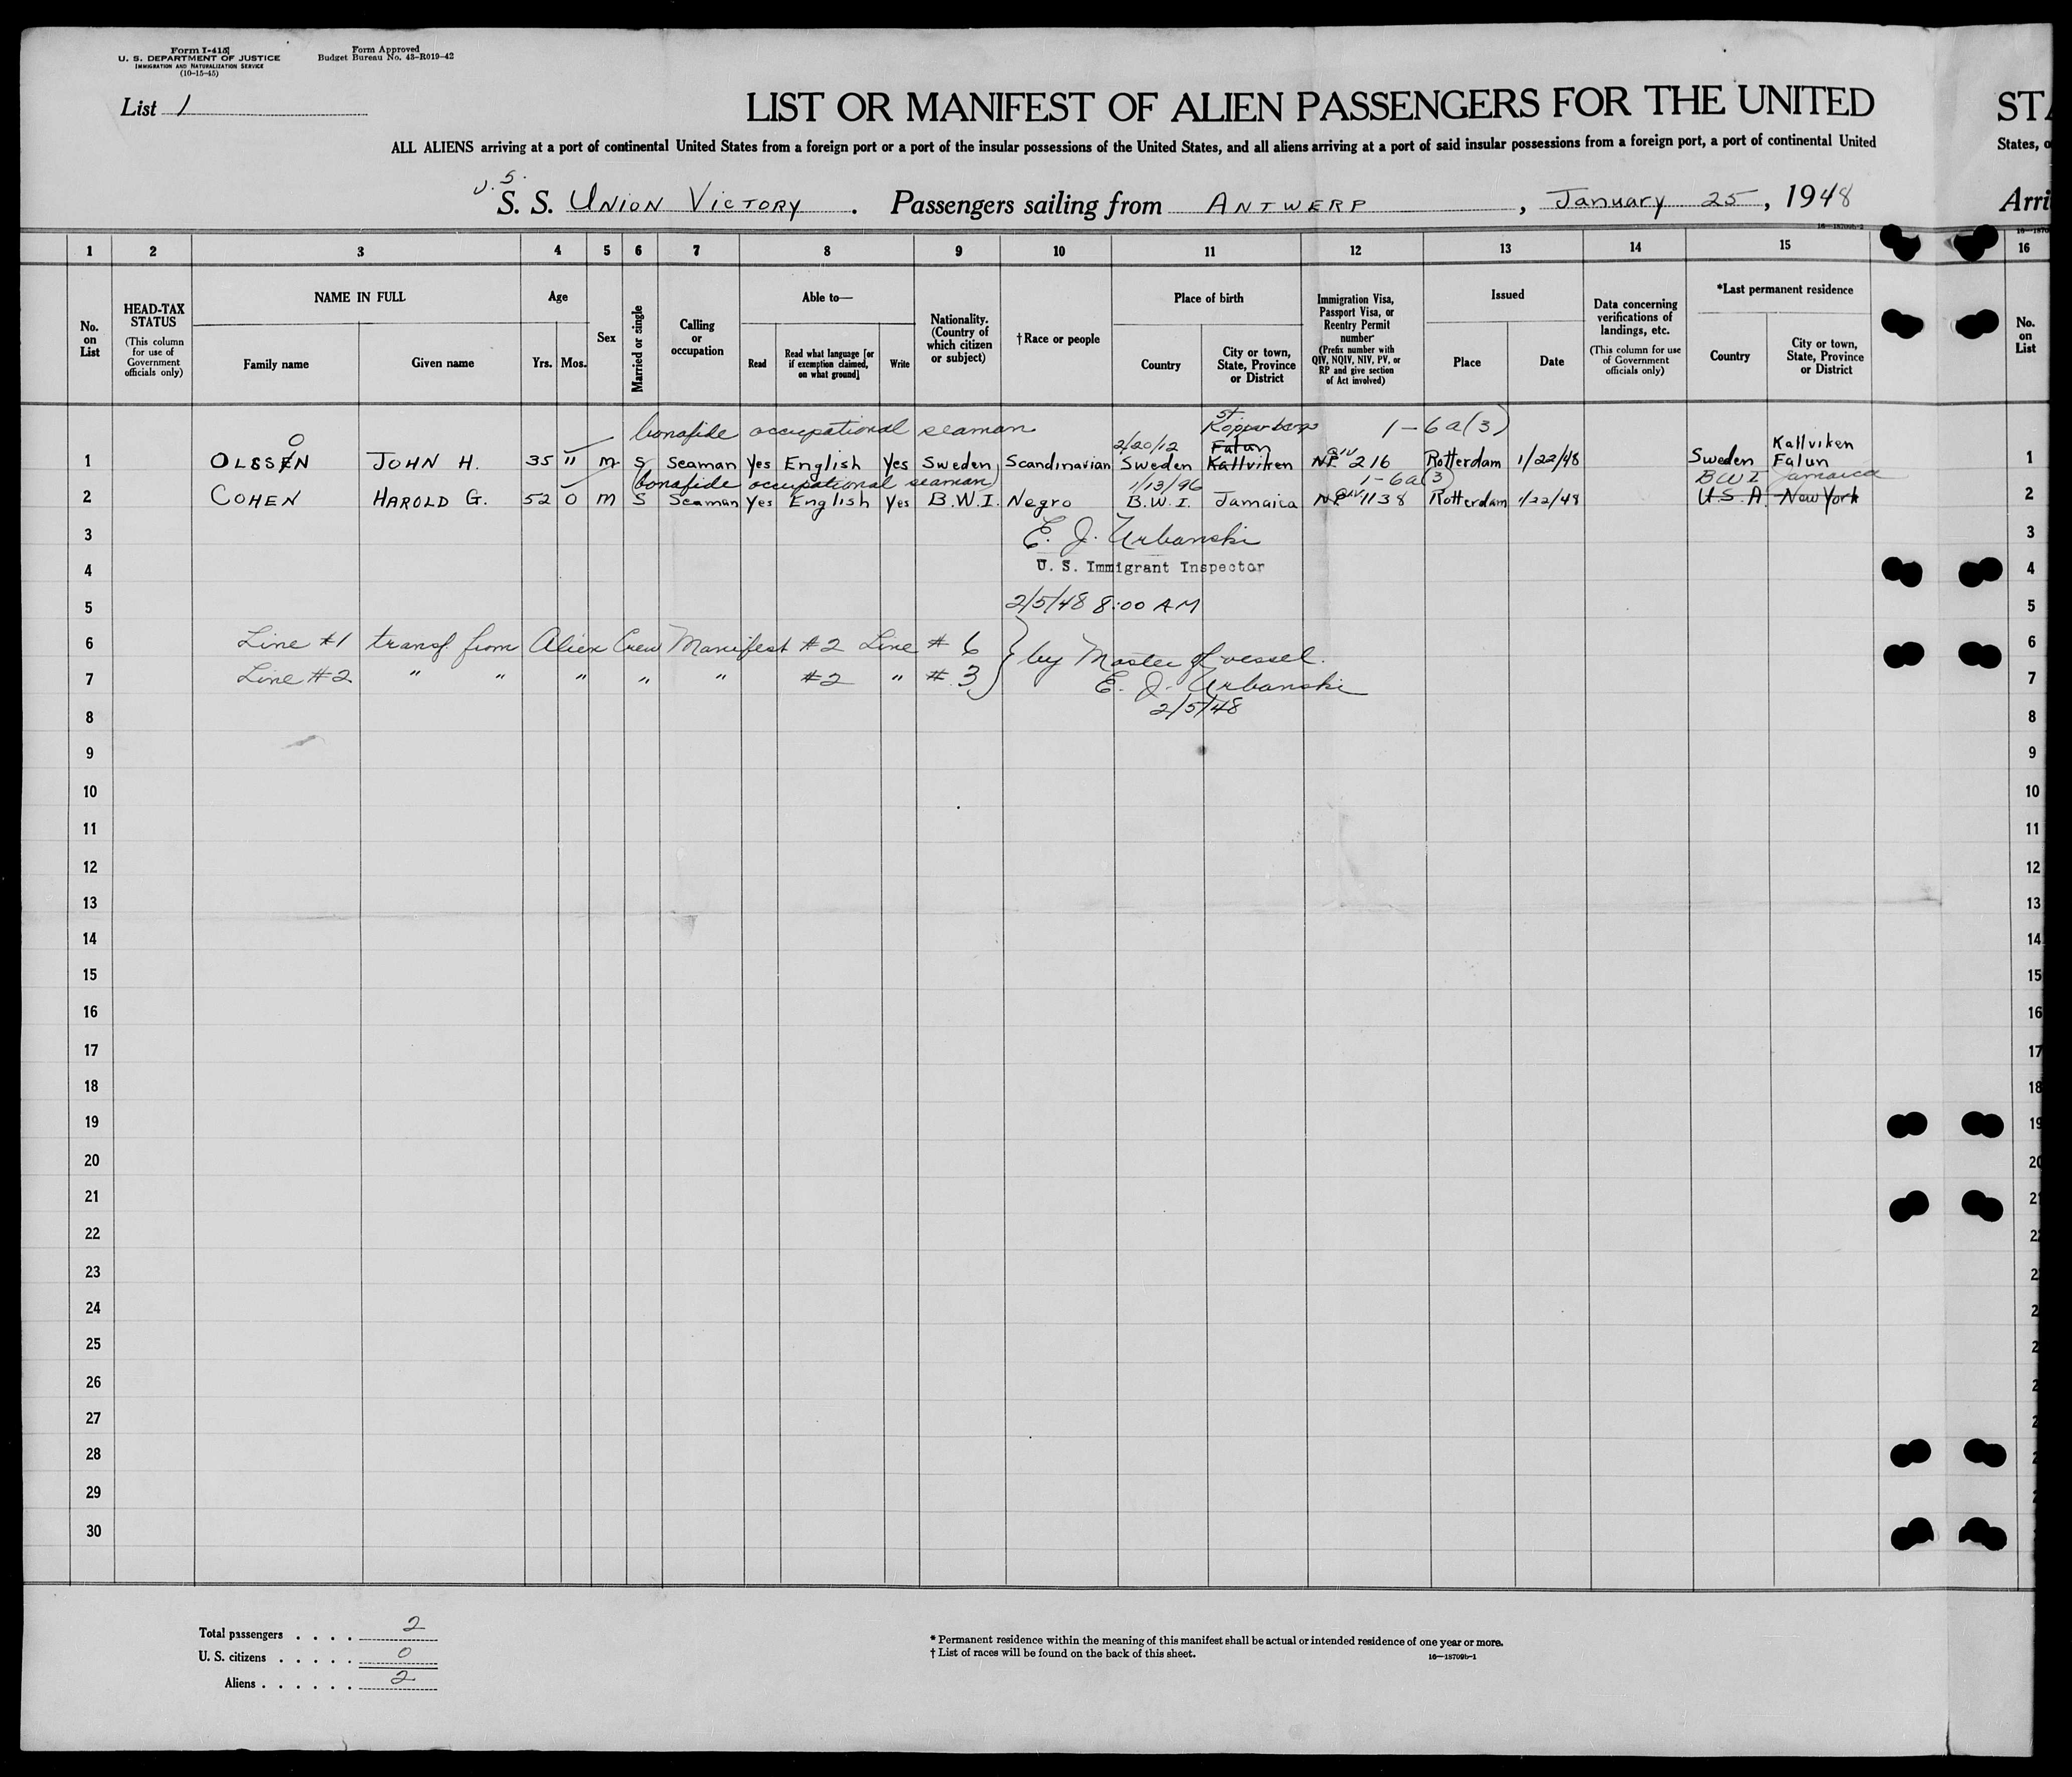 Form I-415
U. S. DEPARTMENT OF JUSTICE
IMMIGRATION AND NATURALIZATION SERVICE
(10-15-45)
Form Approved
Budget Bureau No. 43-R019-42
List 1
LIST OR MANIFEST OF ALIEN PASSENGERS FOR THE UNITED
STA
ALL ALIENS arriving at a port of continental United States from a foreign port or a port of the insular possessions of the United States, and all aliens arriving at a port of said insular possessions from a foreign port, a port of continental United
States, o
U. S.
S. S. UNION VICTORY . Passengers sailing from ANTWERP , January 25 , 1948
Arri
16—18709b-2
1 2 3 4 5 6 7 8 9 10 11 12 13 14 15 16
No. on List
HEAD-TAX STATUS
(This column for use of Government officials only)
NAME IN FULL
Family name
Given name
Age
Yrs. Mos.
Sex
Married or single
Calling or occupation
Able to—
Read
Read what language [or if exemption claimed, on what ground]
Write
Nationality. (Country of which citizen or subject)
†Race or people
Place of birth
Country
City or town, State, Province or District
Immigration Visa, Passport Visa, or Reentry Permit number
(Prefix number with QIV, NQIV, NIV, PV, or RP and give section of Act involved)
Issued
Place
Date
Data concerning verifications of landings, etc.
(This column for use of Government officials only)
*Last permanent residence
Country
City or town, State, Province or District
No. on List
bonafide occupational seaman 2/20/12 St. Kopparbergs Falun 1-6a(3) Kallviken
O
1 OLSSEN JOHN H. 35 11 M S Seaman Yes English Yes Sweden Scandinavian Sweden Kallviken NP QIV 216 Rotterdam 1/22/48 Sweden Falun 1
(bonafide occupational seaman) 1/13/96 1-6a(3) BWI Jamaica
2 COHEN HAROLD G. 52 0 M S Seaman Yes English Yes B.W.I. Negro B.W.I. Jamaica NP QIV 1138 Rotterdam 1/22/48 U.S.A. New York 2
3 E. J. Urbanski 3
4 U. S. Immigrant Inspector 4
5 2/5/48 8:00 AM 5
6 Line #1 transf from Alien Crew Manifest #2 Line #6 6
by Master of vessel.
7 Line #2 " " " " " #2 " #3 E. J. Urbanski 7
8 2/5/48 8
9 9
10 10
11 11
12 12
13 13
14 14
15 15
16 16
17 17
18 18
19 19
20 20
21 2
22 2
23 2
24 2
25 2
26 2
27 2
28 2
29 2
30
Total passengers . . . . 2
U. S. citizens . . . . . 0
Aliens . . . . . . 2
* Permanent residence within the meaning of this manifest shall be actual or intended residence of one year or more.
† List of races will be found on the back of this sheet.
16—18709b-1